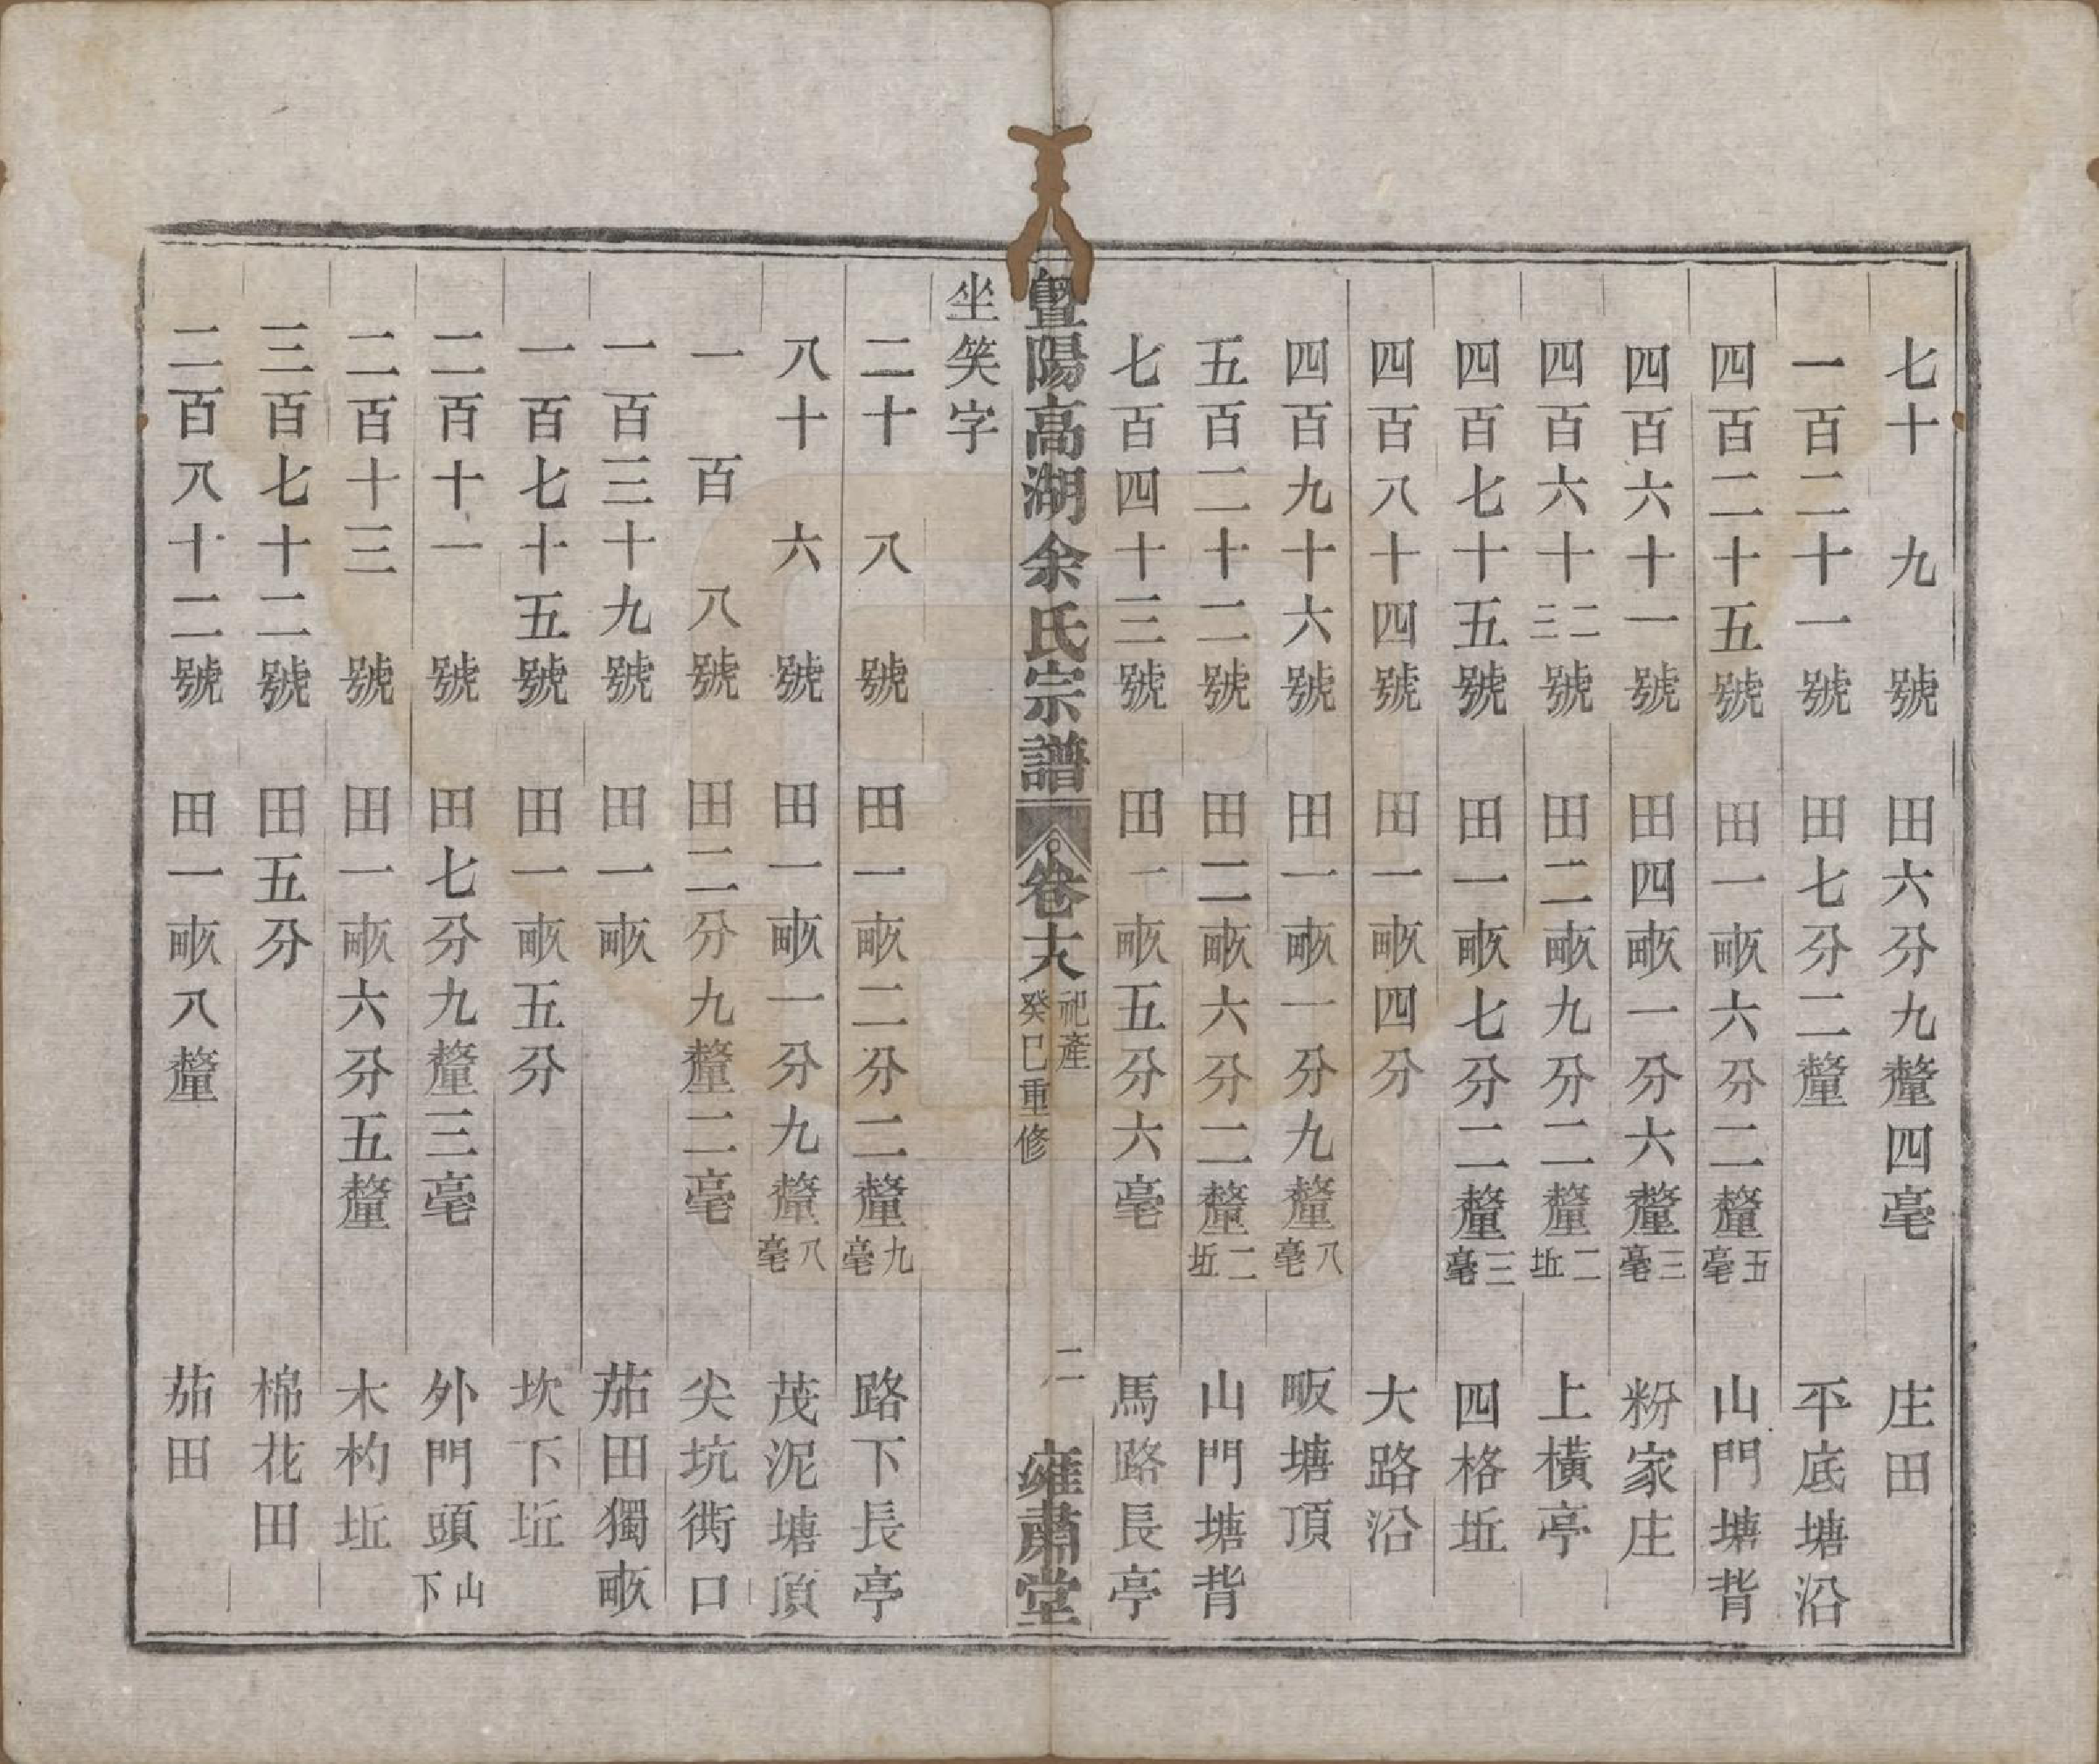 七十九號 田六分九釐四毫 庄田
一百二十一號 田七分二釐 平底塘沿
四百二十五號 田一畝六分二釐五毫 山門塘背
四百六十一號 田四畝一分六釐三毫 粉家庄
四百六十二三號 田二畝九分二釐二坵 上橫亭
四百七十五號 田一畝七分二釐三毫 四格坵
四百八十四號 田一畝四分 大路沿
四百九十六號 田一畝一分九釐八毫 畈塘頂
五百二十二號 田二畝六分二釐二坵 山門塘背
七百四十三號 田一畝五分六毫 馬路長亭
暨陽高湖余氏宗譜 卷十八 祀產 癸巳重修 二 雍肅堂
坐笑字
二十八號 田一畝二分二釐九毫 路下長亭
八十六號 田一畝一分九釐八毫 茂泥塘頂
一百八號 田二分九釐二毫 尖坑衖口
一百三十九號 田一畝 茄田獨畝
一百七十五號 田一畝五分 坎下坵
二百十一號 田七分九釐三毫 外門頭山下
二百十三號 田一畝六分五釐 木杓坵
三百七十二號 田五分 棉花田
二百八十二號 田一畝八釐 茄田